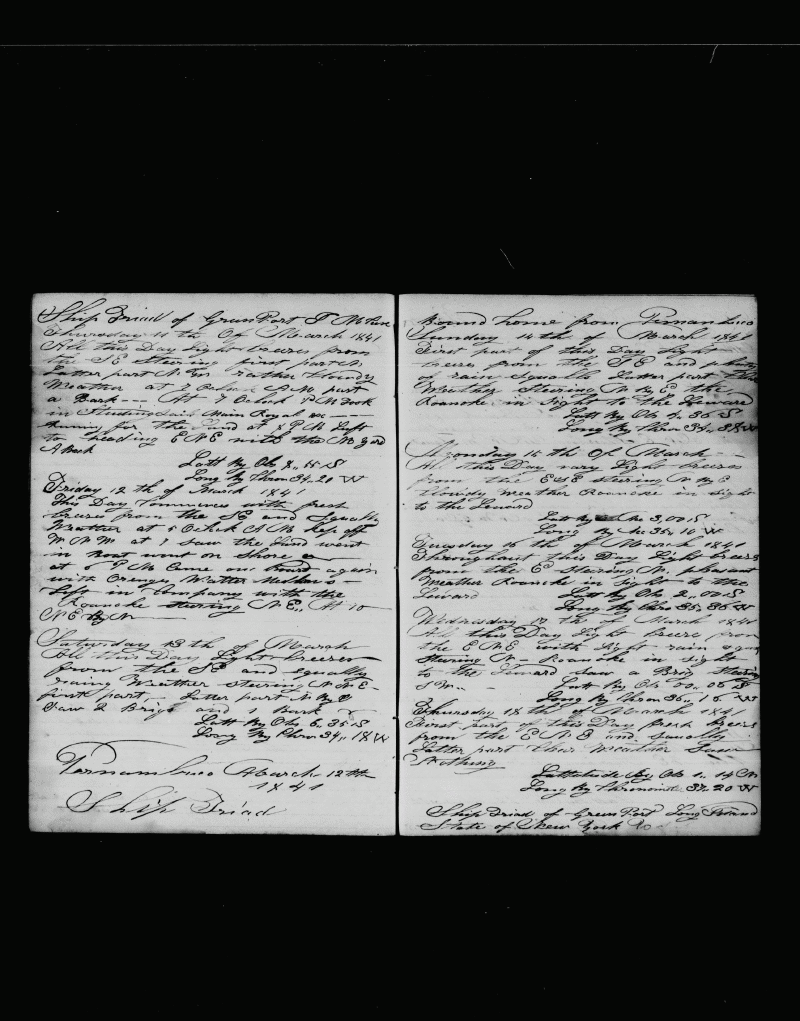 Ship Triad of Green Port
Thursday 11 th Of March 1841
All this Day light breeze from
the SE Steering first part N
Latter part N Rather Cloudy
Weather at 7 Oclock A M
a Bark --- At 7 Oclock P M Took
in Studdingsail Main Royal &c ---
runing for the land at 8 P M Luft
to heading E N E with the M Yard
A Back
Latt By Obs 8,, 15 S
Long By Chron 34,, 20 W
Friday 12 th of March 1841
This Day Commences with fresh
breeze from the SE and Squally
Weather at 5 Oclock A M kep off
W N W at 7 saw the land went
in Boat went on Shore
at 6 P M Came on board again
with Orenges Watter Mellons -
Left in Company with the
Roanoke steering N E,, At 10
N E By N
Saturday 13 th of March
All this Day Light breezes
from the SE and Squally
raing Weather steering N N E -
first part Latter part N By E
Saw 2 Brigs and 1 Bark
Latt By Obs 6,, 35 S
Long By Chron 34,, 18 W
Pernambuco March 12 th
1841
Ship Triad
Bound home from Pernambuco
Sunday 14 th of March 1841
First part of this Day Light
breeze from the ESE and
of rain Squally Latter part
Weather Steering N By E the
Roanoke in sight to the Leward
Latt By Obs 4,, 36 S
Long By Chron 34,, 38 W
Monday 15 th Of March --
All this Day vary Light breeze
from the ESE steering N By E
Clowdy Weather Roanoke in sight
to the Leward
Latt By 3,, 00 S
Long By 35,, 10 W
Tuesday 16 th of March 1841
Throughout this Day Light breeze
from the E Steering N. pleasant
Weather Roanoke in sight to the
Leward Latt By Obs 2,, 00 S
Long By Chron 35,, 36 W
Wednesday 17 th of March 1841
All this Day Light breeze from
the E N E with Light rain
Steering N - Roanoke in sight
to the Leward saw a Brig Steering
Latt By Obs 00,, 05 S
Long By Chron 36,, 16 W
Thursday 18 th of March 1841
First part of this Day fresh breeze
from the E N E and Squally
Latter part thick Weather Saw
Nothing
Lattitude By Ob 1,, 14 N
Long By Chronomitr 37,, 20 W
Ship Triad of Green Port Long Island
State of New York